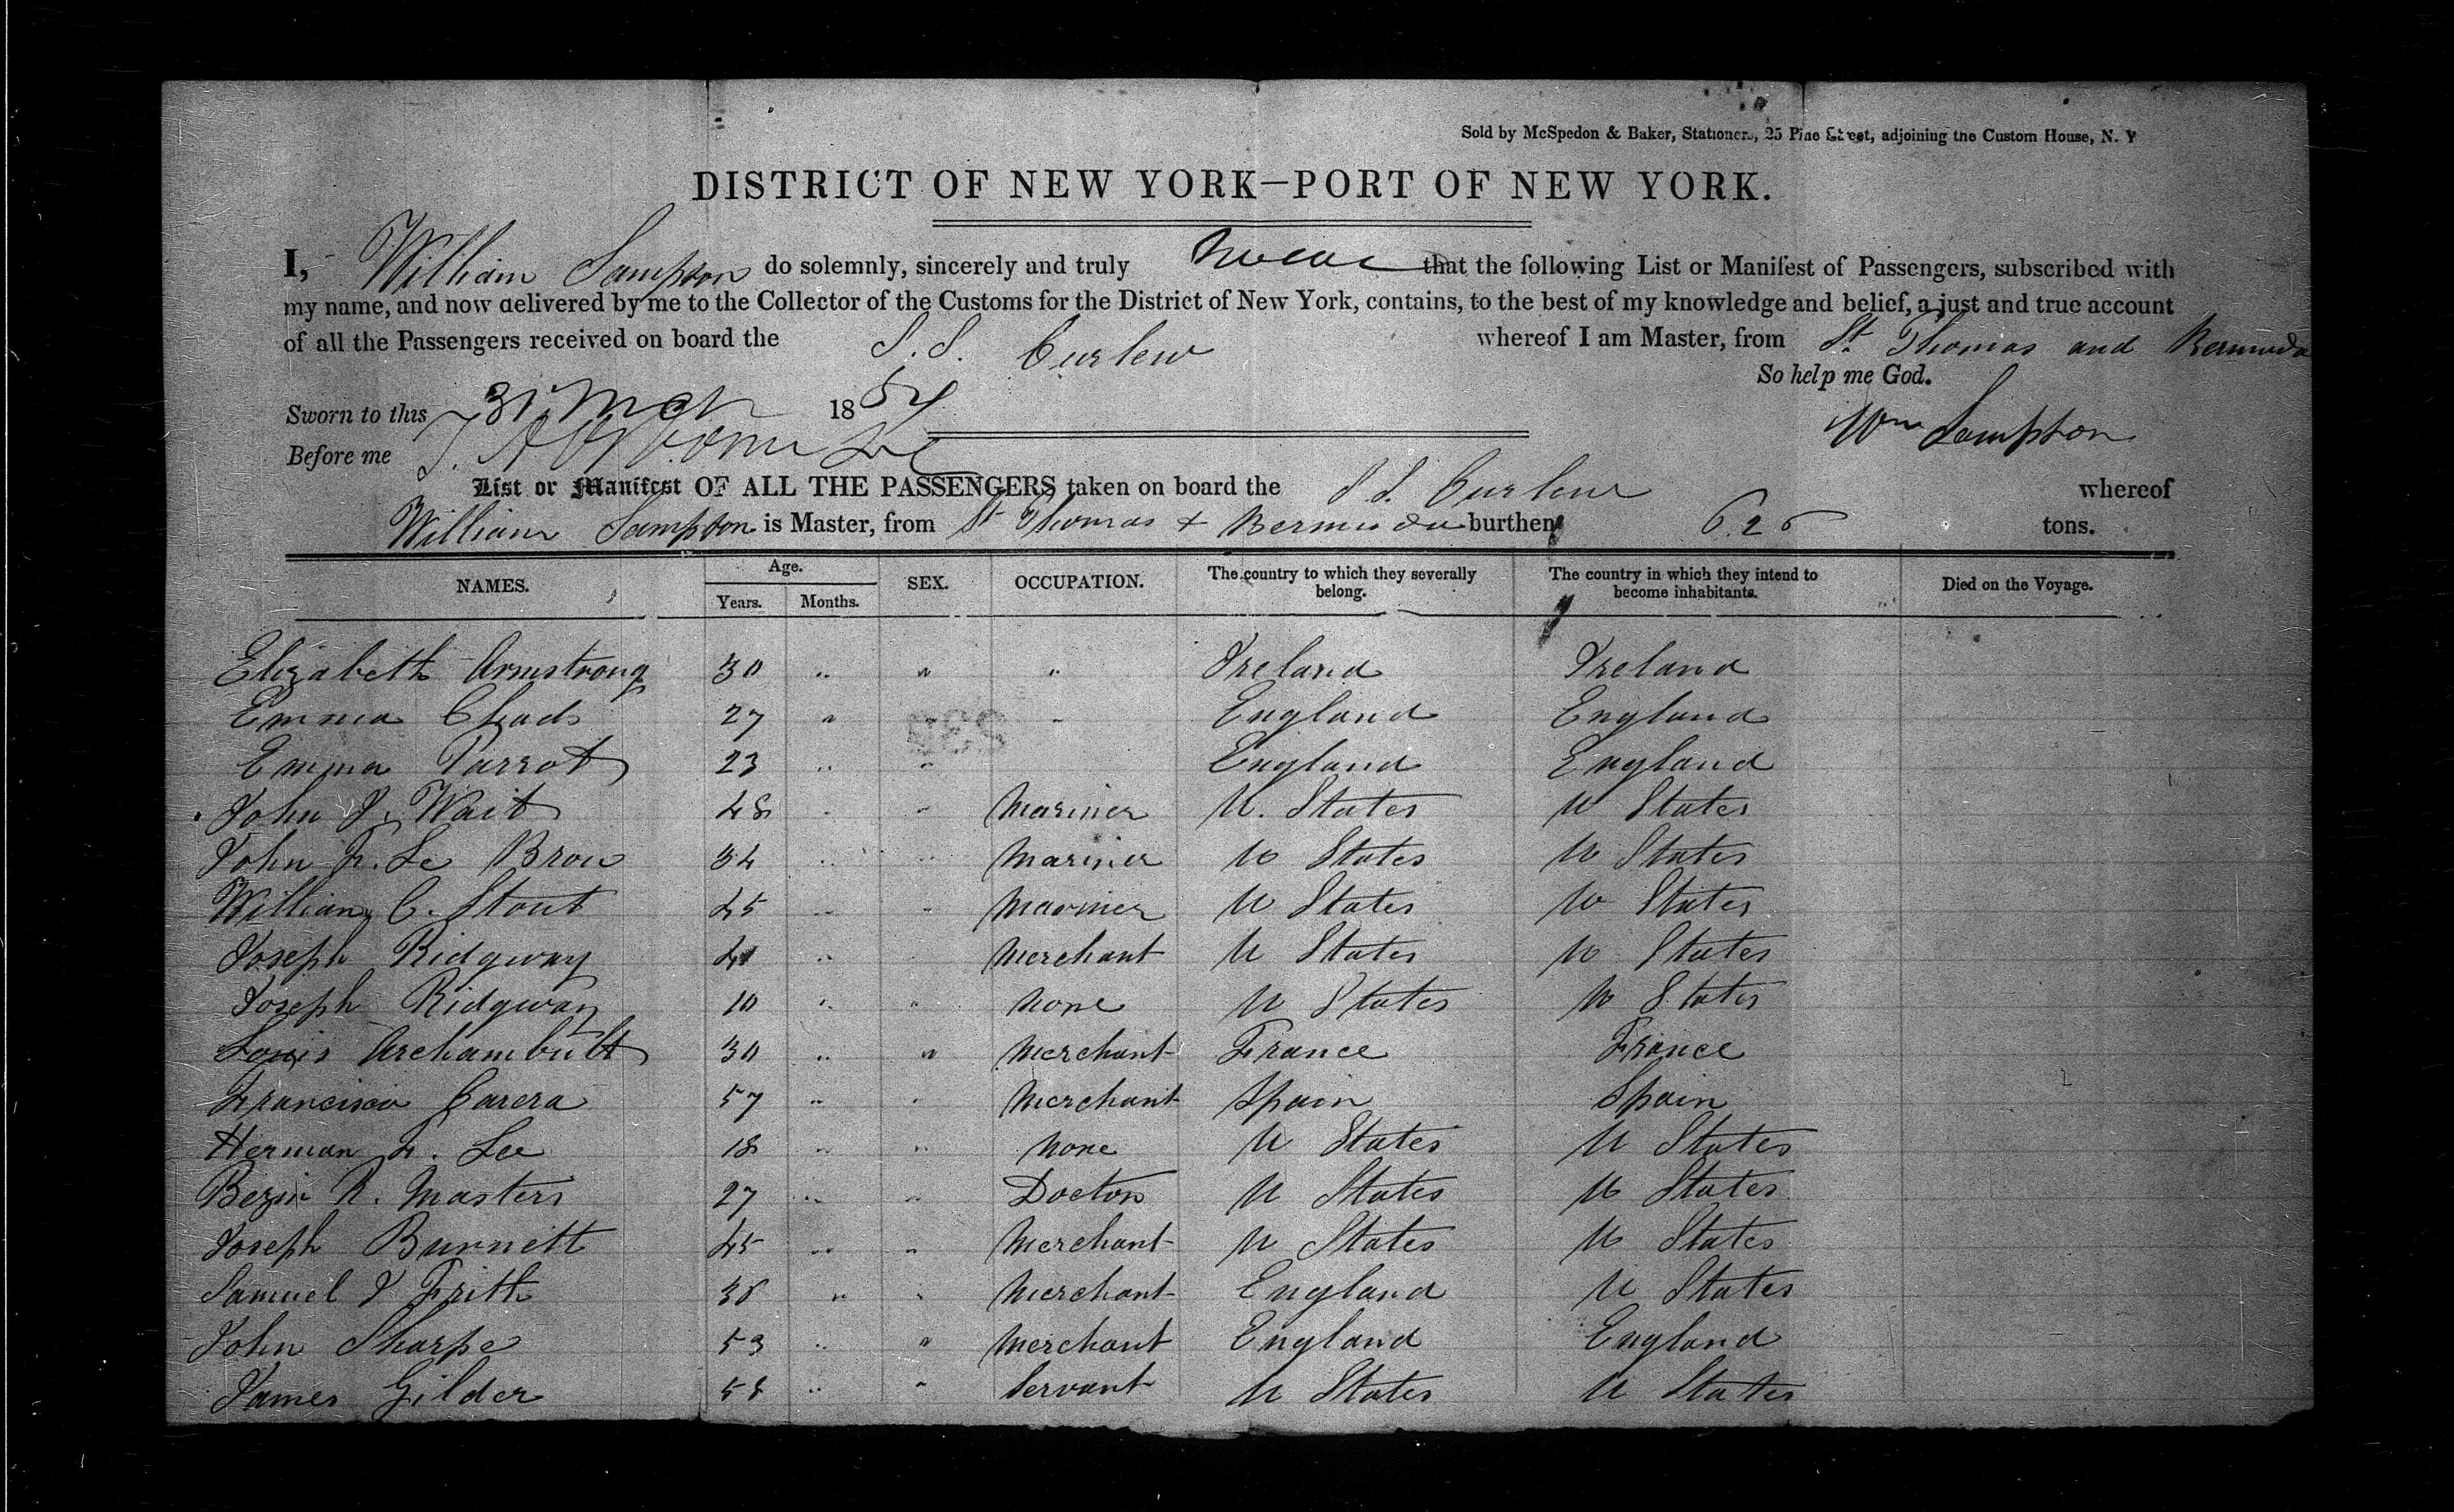 Sold by McSpedon & Baker, Stationers, 25 Pine Street, adjoining the Custom House, N. Y
DISTRICT OF NEW YORK—PORT OF NEW YORK.
I, William Sampson do solemnly, sincerely and truly swear that the following List or Manifest of Passengers, subscribed with
my name, and now delivered by me to the Collector of the Customs for the District of New York, contains, to the best of my knowledge and belief, a just and true account
of all the Passengers received on board the S.S. Curlew whereof I am Master, from St Thomas and Bermuda
So help me God.
Sworn to this 31 Mch 1854
Wm Sampson
Before me
List or Manifest OF ALL THE PASSENGERS taken on board the S S. Curlew whereof
William Sampson is Master, from St Thomas + Bermuda burthen tons.
NAMES. Age. SEX. OCCUPATION. The country to which they severally belong. The country in which they intend to become inhabitants. Died on the Voyage.
Years. Months.
Elizabeth Armstrong 30 " " " Ireland Ireland
Emma Chads 27 " " England England
Emma Parrot 23 " " England England
John J. Wait 48 " " Mariner U. States U States
John F. Le Brow 34 " " Mariner U States U States
William C. Stout 45 " " Mariner U States U States
Joseph Ridgway 41 " Merchant U States U States
Joseph Ridgway 10 " " None U States U States
Louis Archambult 30 " " Merchant France France
Francisco Carera 57 " " Merchant Spain Spain
Herman F. Lee 18 " " None U States U States
Bezin R. Masters 27 " " Doctor U States U States
Joseph Burnett 45 " " Merchant U States U States
Samuel J Frith " " Merchant England U States
John Sharpe 53 " " Merchant England England
James Gilder 58 " " Servant U States U States